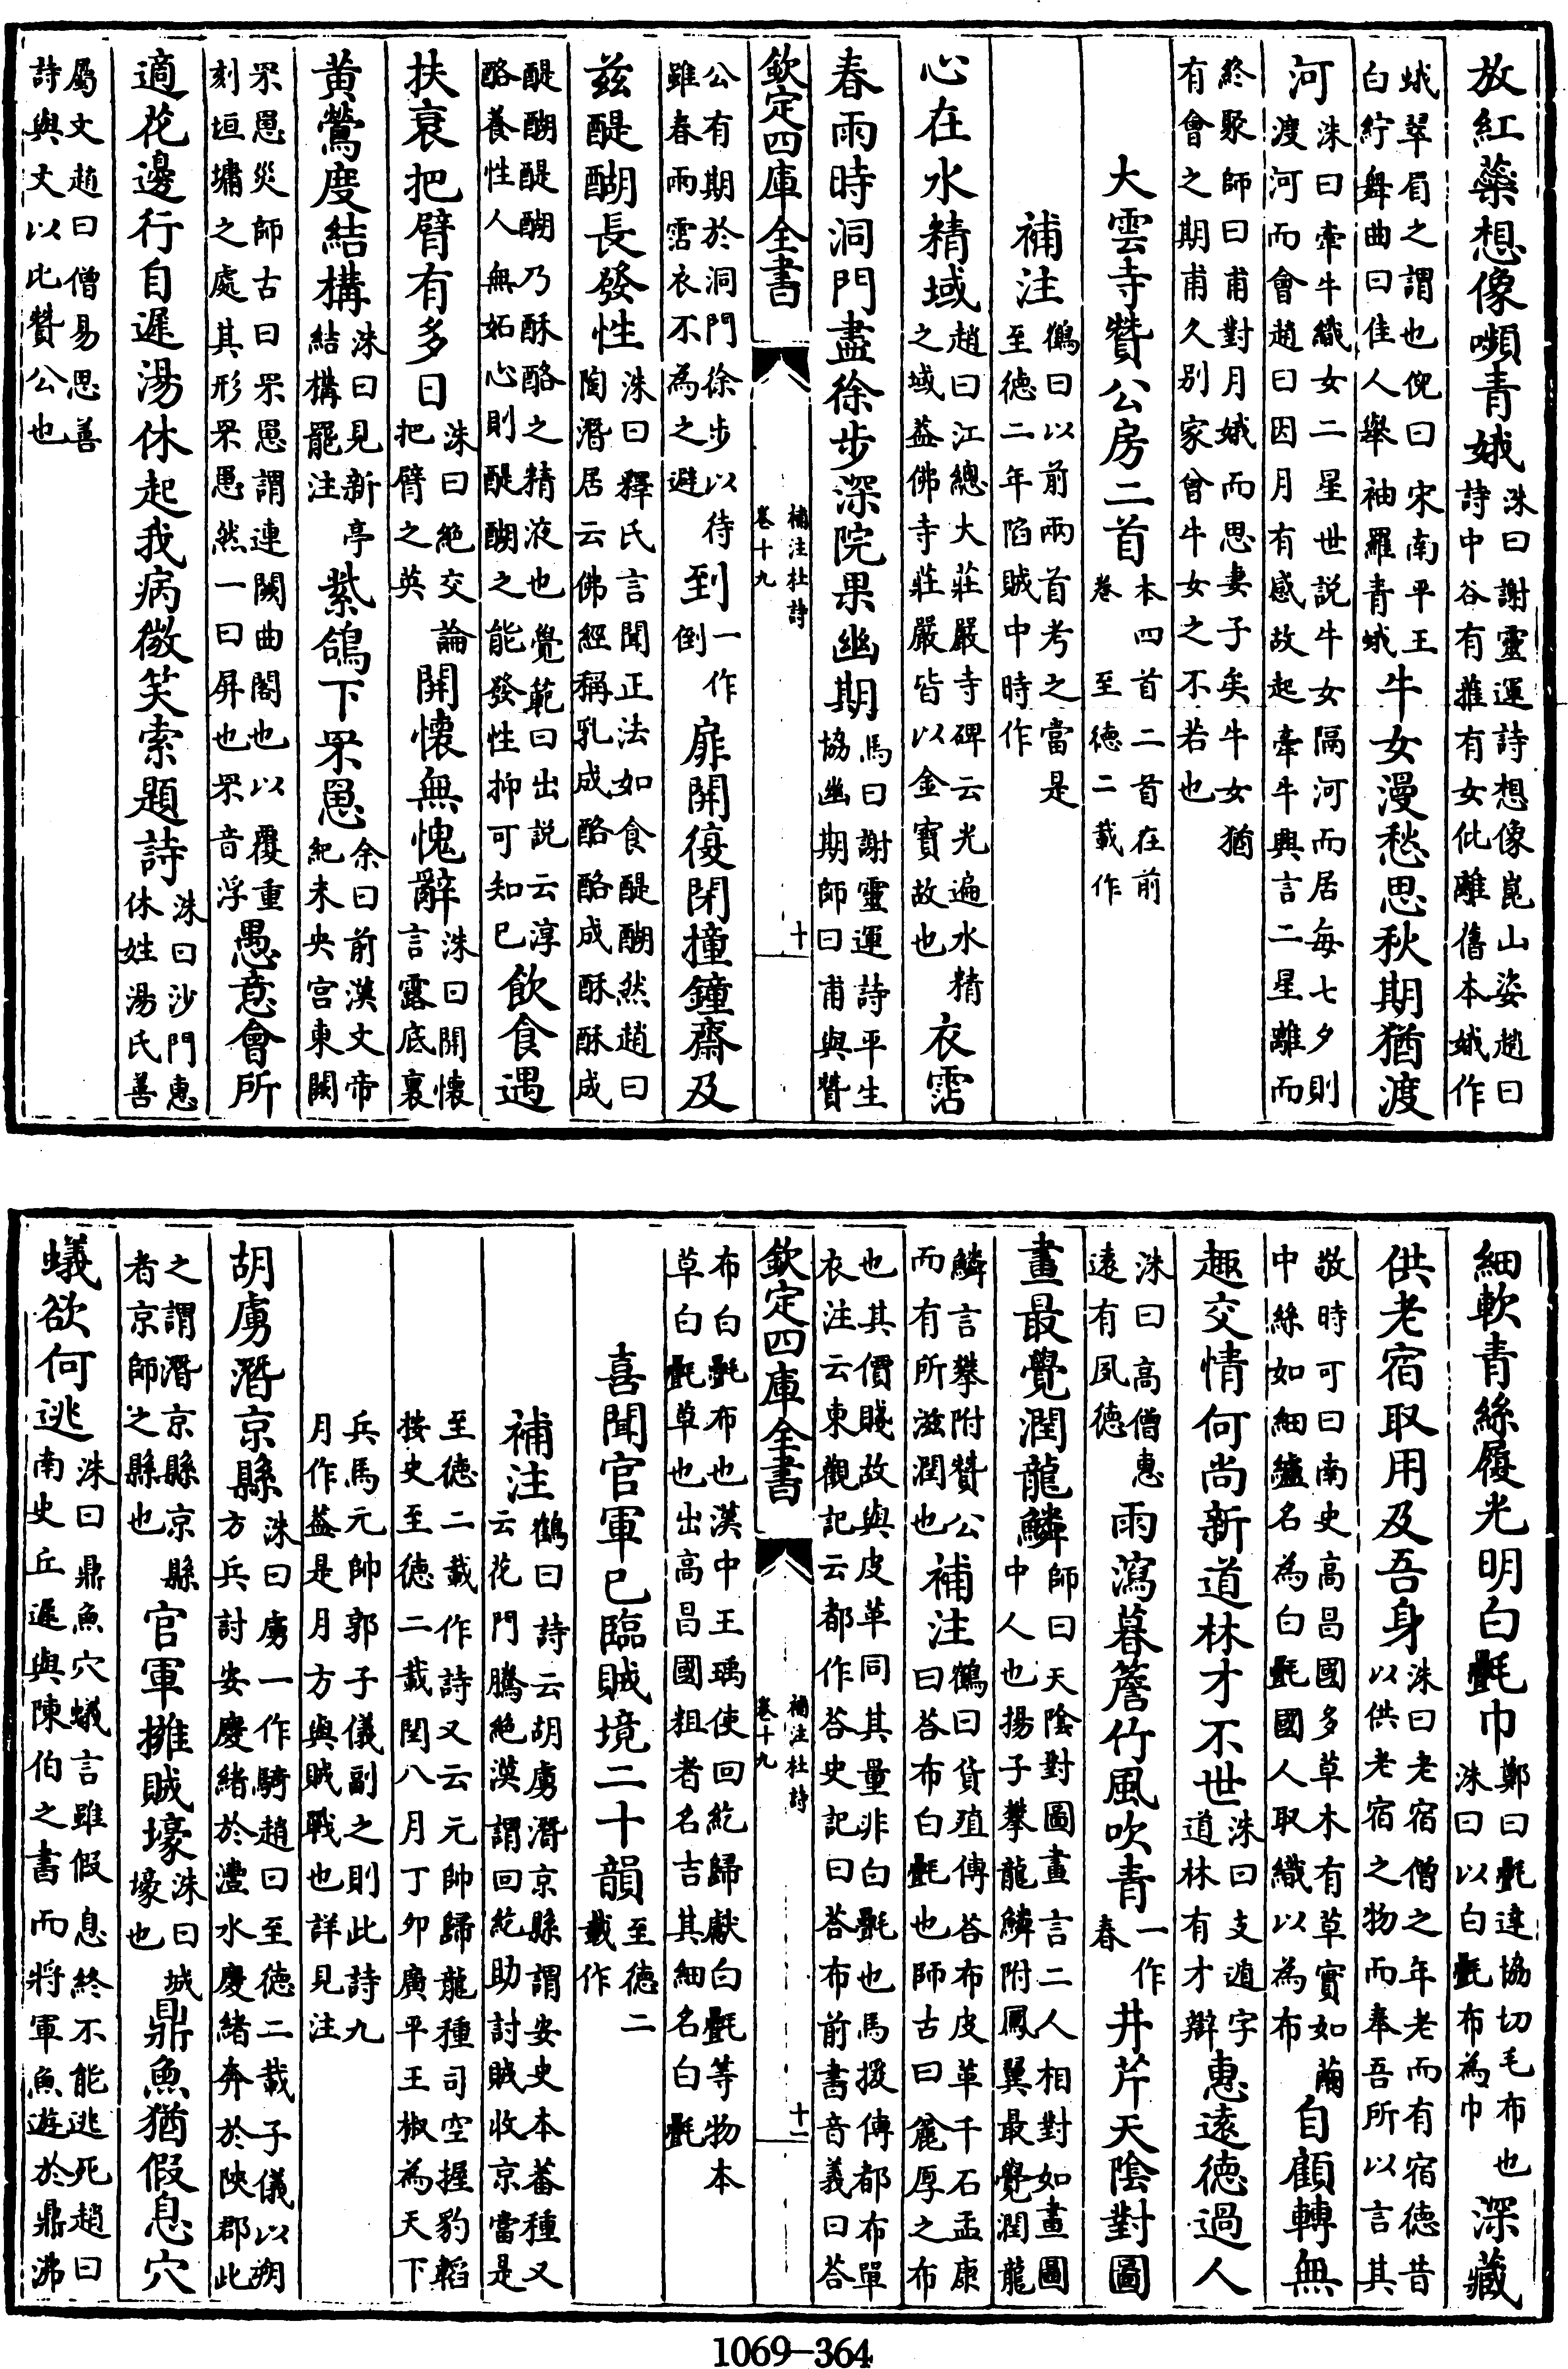 放紅蘂想像嚬青娥洙曰謝靈運詩想像崑山姿趙曰詩中谷有蓷有女仳離舊本娥作
蛾翠眉之謂也倪曰宋南平王白紵舞曲曰佳人舉袖羅青蛾牛女漫愁思秋期猶渡
河洙曰牽牛織女二星世說牛女隔河而居每七夕則渡河而會趙曰因月有感故起牽牛興言二星雖而
終聚師曰甫對月娥而思妻子矣牛女猶有會之期甫久別家曾牛女之不若也
大雲寺贊公房二首本四首二首在前卷至德二載作
補注鶴曰以前兩首考之當是至德二年陷賊中時作
心在水精域趙曰江總大莊嚴寺碑云光遍水精之域蓋佛寺莊嚴皆以金寶故也衣霑
春雨時洞門盡徐步深院果幽期馬曰謝靈運詩平生協幽期師曰甫與贊
欽定四庫全書 補注杜詩卷十九 十
公有期於洞門徐步以待雖春雨霑衣不為之避到一作倒扉開復閉撞鐘齋及
茲醍醐長發性洙曰釋氏言聞正法如食醍醐然趙曰陶潛居云佛經稱乳成酪酪成酥酥成
醍醐醍醐乃酥酪之精液也覺範曰出説云淳酪養性人無妬心則醍醐之能發性抑可知已飲食過
扶衰把臂有多日洙曰絶交論把臂之英開懷無愧辭洙曰開懷言露底裏
黄鶯度結構洙曰見新亭結構罷注紫鴿下罘罳余曰前漢文帝紀未央宫東闕
罘罳災師古曰罘罳謂連闕曲閣也以覆重刻垣墉之處其形罘罳然一曰屏也罘音浮愚意會所
適花邊行自遲湯休起我病微笑索題詩洙曰沙門惠休姓湯氏善
屬文趙曰僧易思善詩與文以比贊公也
細軟青絲履光明白㲲巾鄭曰㲲達協切毛布也洙曰以白㲲布為巾深藏
供老宿取用及吾身洙曰老宿僧之年老而有宿德昔以供老宿之物而奉吾所以言其
敬時可曰南史高昌國多草木有草實如繭中絲如細纑名為白㲲國人取織以為布自顧轉無
趣交情何尚新道林才不世洙曰支遁字道林有才辯惠遠德過人
洙曰高僧惠遠有夙德雨瀉暮簷竹風吹青一作春井芹天陰對圖
畫最覺潤龍鱗師曰天陰對圖畫言二人相對如畫圖中人也揚子攀龍鱗附鳳翼最覺潤龍
鱗言攀附贊公而有所滋潤也補注鶴曰貨殖傳荅布皮革千石孟康曰荅布白㲲也師古曰麄厚之布
也其價賤故與皮革同其量非白㲲也馬援傳都布單衣注云東觀記云都作荅史記曰荅布前書音義曰荅
欽定四庫全書 補注杜詩卷十九 十一
布白㲲布也漢中王瑀使回紇歸獻白㲲等物本草白㲲草也出高昌國粗者名吉其細名白㲲
喜聞官軍已臨賊境二十韻至德二載作
補注鶴曰詩云胡虜潛京縣謂安史本蕃種又云花門騰絶漠謂回紇助討賊收京當是
至德二載作詩又云元帥歸龍種司空握豹韜按史至德二載閏八月丁卯廣平王椒為天下
兵馬元帥郭子儀副之則此詩九月作蓋是月月方與賊戰也詳見注
胡虜潛京縣洙曰虜一作騎趙曰至德二載子儀以朔方兵討安慶緒於灃水慶緒奔於陜郡此
之謂潛京縣京縣者京師之縣也官軍擁賊壕洙曰城壕也鼎魚猶假息穴
蟻欲何逃洙曰鼎魚穴蟻言雖假息終不能逃死趙曰南史丘遲與陳伯之書而將軍魚遊於鼎沸
1069-364